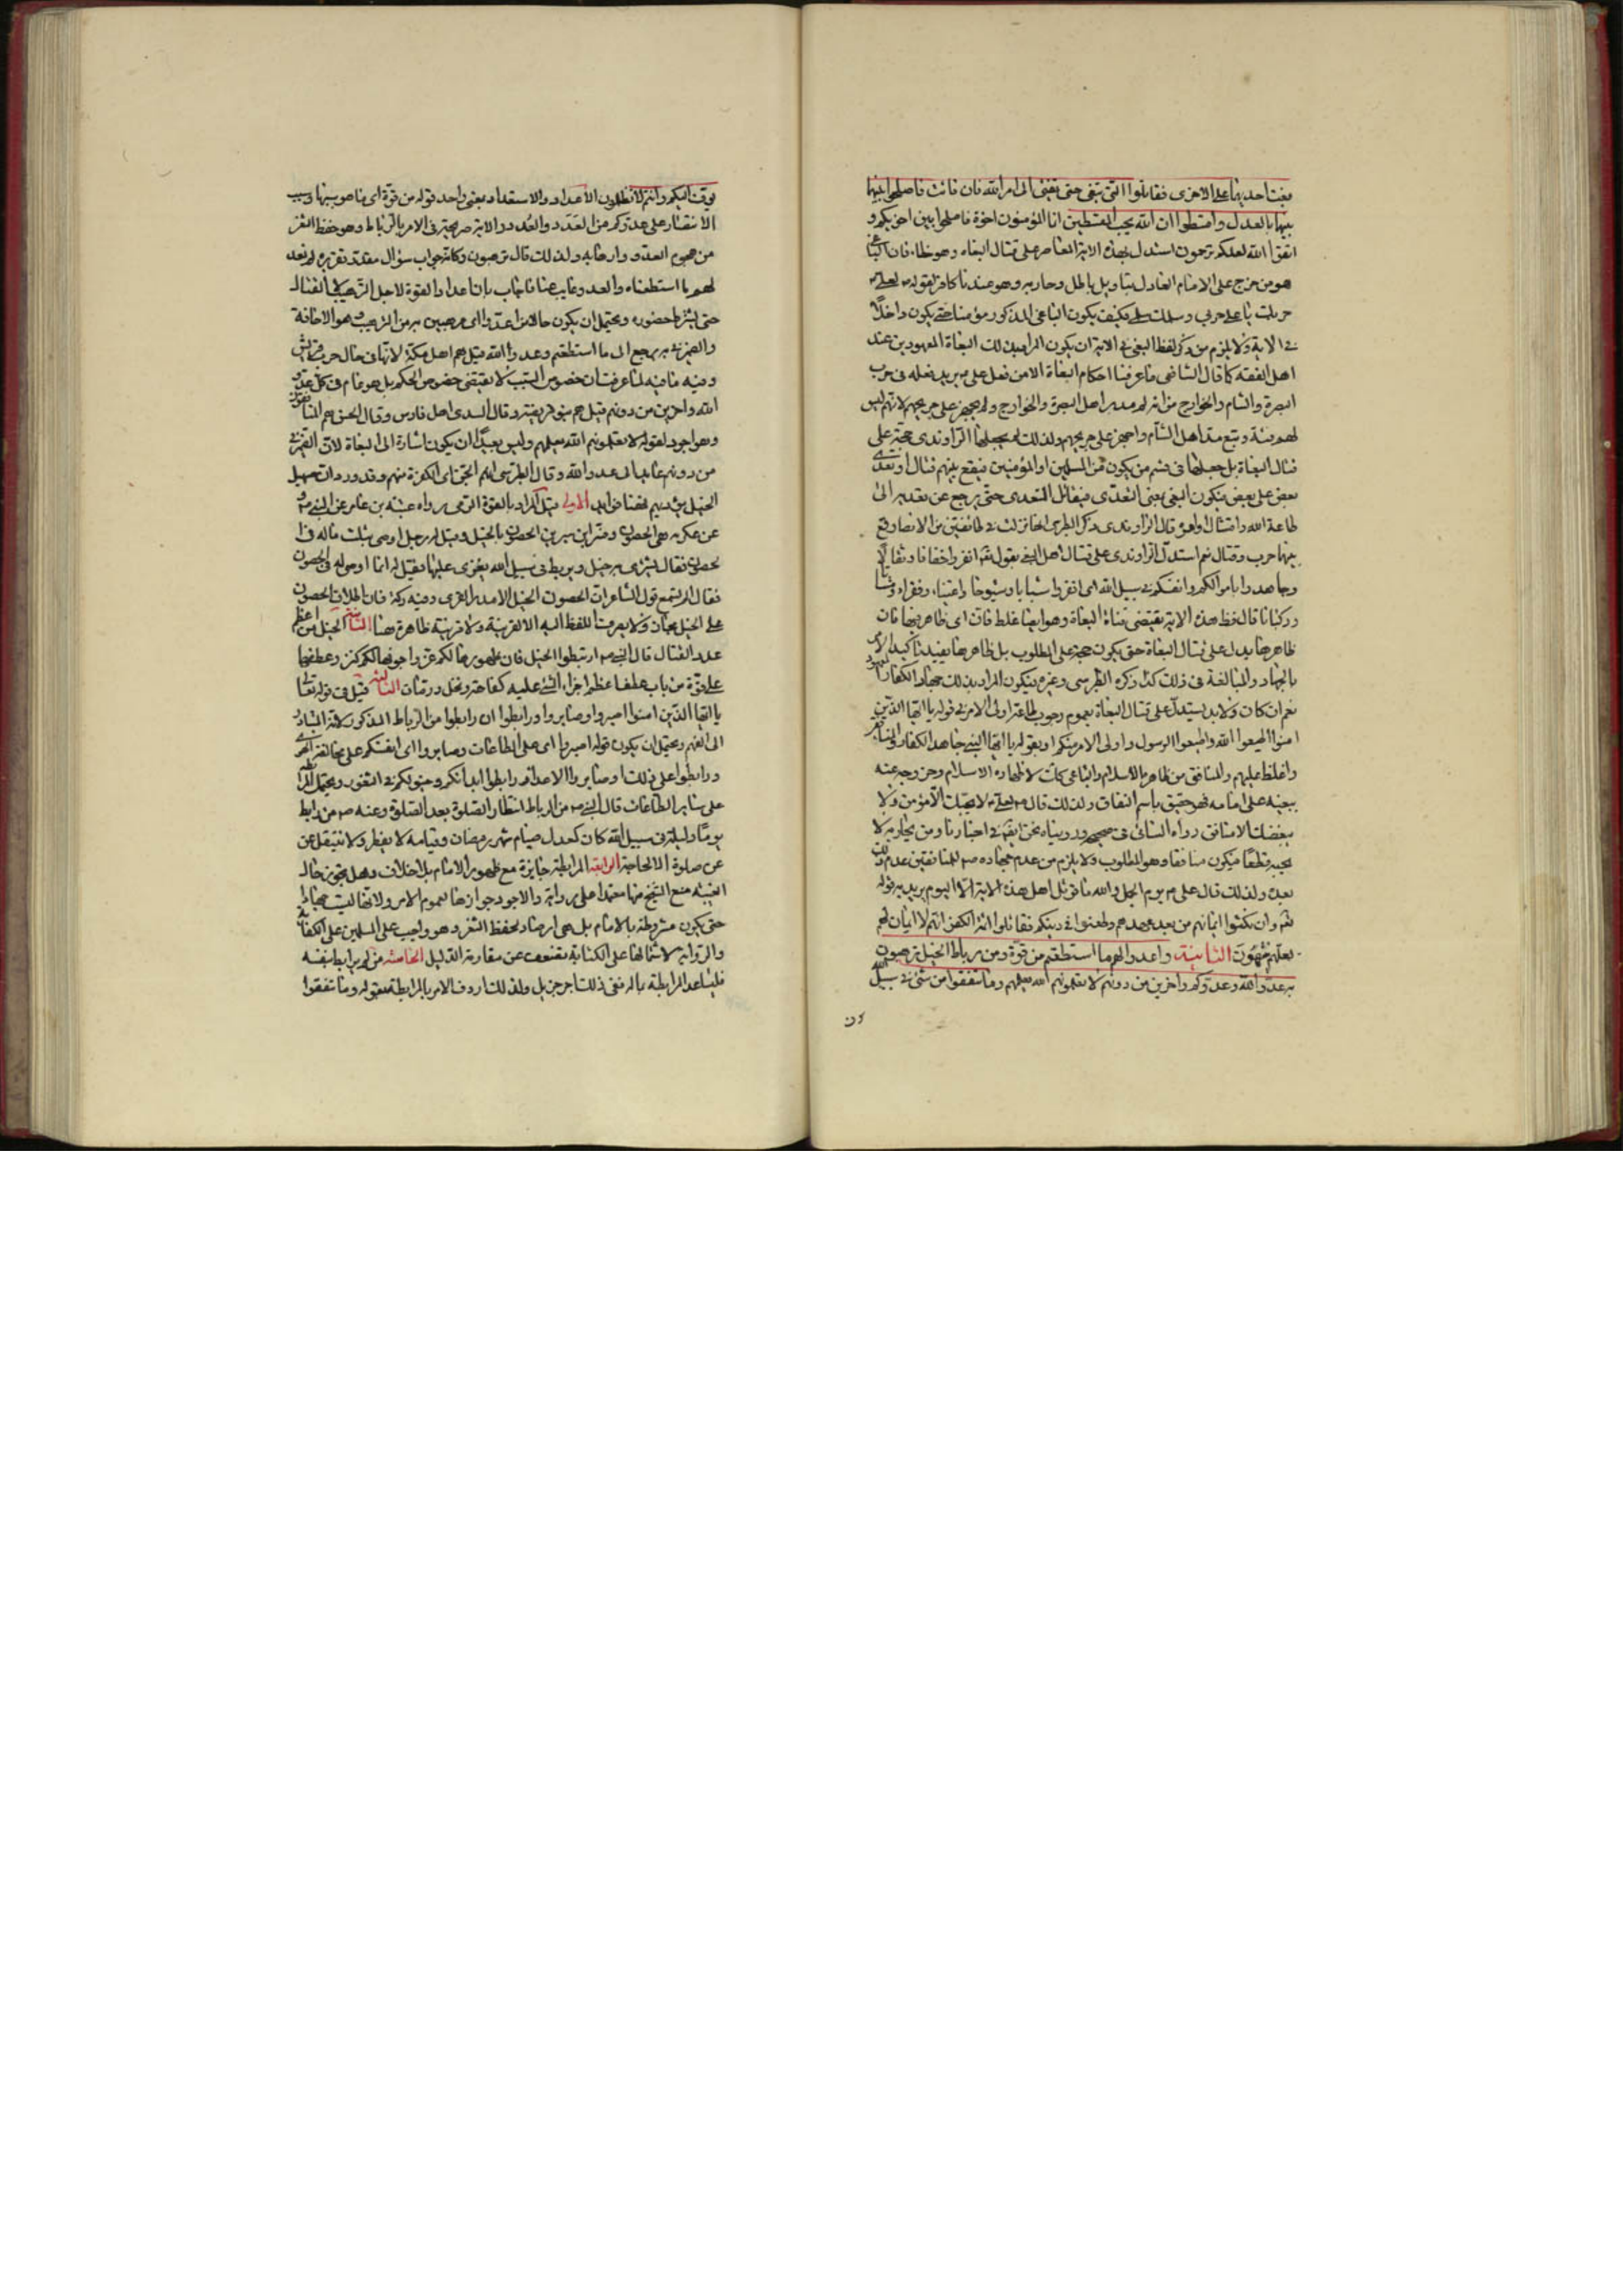 بغت احديهما على الاخرى فقاتلوا التى تبغى حتى تفئ الى امر الله فان فائت فاصلحوا بينهما
بينهما بالعدل واقسطوا ان الله يحب المقسطين انما المؤمنون اخوة فاصلحوا بين اخويكم و
اتقوا الله لعلكم ترحمون استدل بهذه الاية المعاصر على قتال البغاه وهو خطاء فان الباغى
هو من خرج على الامام العادل بتاويل باطل وحاربه وهو عندنا كافر لقوله لعلى
حربك يا على حربى وسلمك سلمى فكيف يكون الباغى المذكور مؤمنا حتى يكون داخلاً
فى الاية ولا يلزم من ذكر لفظ البغى فى الاية ان يكون المراد بذلك البغاة المعهودين عند
اهل الفقه كما قال الشافعى ما عرفنا احكام البغاة الا من فعل على يريد فعله فى حرب
البصرة والشام والخوارج من انه لم مدبر اهل البصرة والخوارج ولم يجهز على جريحهم لانهم ليس
لهم فئة وتبع مدبر اهل الشام واجهز على جريحهم ولذلك لم يجعلها الراوندى حجة على
قتال البغاة بل جعلها فى قسم من يكون من المسلمين او المؤمنين فيقع بينهم قتال او تعدى
بعض على بعض فيكون البغى بمعنى التعدى فيقاتل المتعدى حتى يرجع عن تعديه الى
طاعة الله وامتثال اوامره قال الراوندى ذكر الطبرى انها نزلت فى طائفتين من الانصار وقع
بينهما حرب وقتال نعم استدل الراوندى على قتال اهل البغى بقوله تعم انفروا خفافا وثقالا
وجاهدوا باموالكم وانفسكم فى سبيل الله اى انفروا شبابا وشيوخا واغنياء وفقراء ومشاة
وركبانا قال فظ هذه الاية يقتضى قتال البغاة وهو ايضا غلط فان اى ظاهر فيها فان
ظاهرها يدل على قتال البغاة حتى يكون حجة على المطلوب بل ظاهرها يفيد تاكيد الامر
بالجهاد والمبالغة فى ذلك كذا ذكره الطبرسى وغيره فيكون المراد بذلك جهاد الكفار المعهود
نعم ان كان ولا بد يستدل على قتال البغاة بعموم وجوب طاعة اولى الامر فى قوله يا ايها الذين
امنوا اطيعوا الله واطيعوا الرسول واولى الامر منكم او بقوله يا ايها النبى جاهد الكفار والمنافقين
واغلظ عليهم والمنافق من ظاهره الاسلام والباغى كذلك لاظهاره الاسلام وخروجه عنه
ببغيه على امامه فهو حقيق باسم النفاق ولذلك قال لعلى لا يحبك الا مؤمن ولا
يبغضك الا منافق رواه النسائى فى صحيحه ورويناه نحن ايضا فى اخبارنا ومن يحاربه لا
يحبه قطعًا فيكون منافقا وهو المطلوب ولا يلزم من عدم جهاده للمنافقين عدم ذلك
بعده ولذلك قال على يوم الجمل والله ما قوتل اهل هذه الاية الا اليوم يريد به قوله
تعم وان نكثوا ايمانهم من بعد عهدهم وطعنوا فى دينكم فقاتلوا ائمة الكفر انهم لا ايمان لهم
لعلهم ينتهون الثانية واعدوا لهم ما استطعتم من قوة ومن رباط الخيل ترهبون
به عدو الله وعدوكم واخرين من دونهم لا تعلمونهم الله يعلمهم وما تنفقوا من شئ فى سبيل الله
يوف اليكم وانتم لا تظلمون الاعداد والاستعداد بمعنى واحد قوله من قوة اى مما هو سببها وسبب
الانتصار على عدوكم من العَدَد والعُدد والاية صريحة فى الامر بالرباط وهو حفظ الثغر
من هجوم العدو وارهابه ولذلك قال ترهبون وكانه جواب سؤال مقدر تقريره لم نعد
لهم ما استطعناه والعدو غايب عنا فاجاب بان اعداد القوة لاجل الترهيب لا القتال
حتى يشترط حضوره ويحتمل ان يكون حالا من اعدوا اى مرهبين به من الترهيب وهو الاخافة
والضمير فى به يرجع الى ما استطعتم وعدو الله قيل هم اهل مكة لانها فى حال حرب قريش
وفيه ما فيه لما عرفت ان خصوص السبب لا يقتضى خصوص الحكم بل هو عام فى كل عدو
الله واخرين من دونهم قيل هم بنو قريظة وقال السدى اهل فارس وقال الحسن هم المنافقون
وهو اجود لقوله لا تعلمونهم الله يعلمهم وليس بعيدًا ان يكون اشارة الى البغاة لان الضمير فى
من دونهم عايد الى عدو الله وقال الطبرسى انهم الجن اى الكفرة منهم وقد ورد ان صهيل
الخيل يؤذيهم فهنا فوايد الاولى قيل المراد بالقوة الرمى رواه عقبة بن عامر عن النبى و
عن عكرمه هى الحصون وفسر ابن سيرين الحصون بالخيل وقيل له رجل اوصى بثلث ماله فى
الحصون فقال يشترى به خيل ويربط فى سبيل الله يغزى عليها فقيل له انما اوصى له فى الحصون
فقال الم تسمع قول الشاعر ان الحصون الخيل لا مدر القرى وفيه ركة فان اطلاق الحصون
على الخيل مجاز ولا يصرف اللفظ اليه الا لقرينة ولا قرينة ظاهرة هنا الثانية الخيل من اعظم
عدد القتال قال النبى ارتبطوا الخيل فان ظهورها لكم عز واجوافها لكم كنز وعطفها
على قوة من باب عطف اعظم اجزاء الشئ عليه كفاكهة ونخل ورمان الثالثة قيل فى قوله تعالى
يا ايها الذين امنوا اصبروا وصابروا ورابطوا ان رابطوا من الرباط المذكور لانه المتبادر
الى الفهم ويحتمل ان يكون قوله اصبروا اى على الطاعات وصابروا اى انفسكم على مخالفة الهوى
ورابطوا على ذلك او صابروا الاعداء ورابطوا ابدانكم وخيولكم فى الثغور ويحتمل المرابطة
على ساير الطاعات قال النبى من الرباط انتظار الصلوة بعد الصلوة وعنه من رابط
يومًا وليلة فى سبيل الله كان كعدل صيام شهر رمضان وقيامه لا يفطر ولا ينتقل عن
عن صلوة الا لحاجة الرابعة المرابطة جايزة مع ظهور الامام بلا خلاف وهل يجوز حال
الغيبة منع الشيخ منها معتمدا على رواية والاجود جوازها لعموم الامر ولانها ليست جهادا
حتى يكون مشروطة بالامام بل هى ارصاد لحفظ الثغر وهو واجب على المسلمين على الكفاية
والرواية لاشتمالها على الكتابة تضعف عن مقاومة الدليل الخامسة من لم يرابط بنفسه
فليساعد المرابطة بماله ففى ذلك اجر جزيل ولذلك اردف الامر بالمرابطة بقوله وما تنفقوا